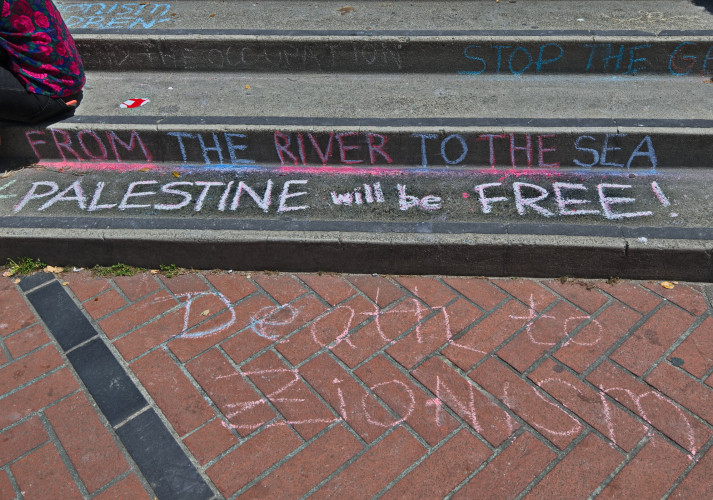 THE OCCUPATION
STOP THE
FROM THE RIVER TO THE SEA
PALESTINE will be FREE!
Death to
Zionism